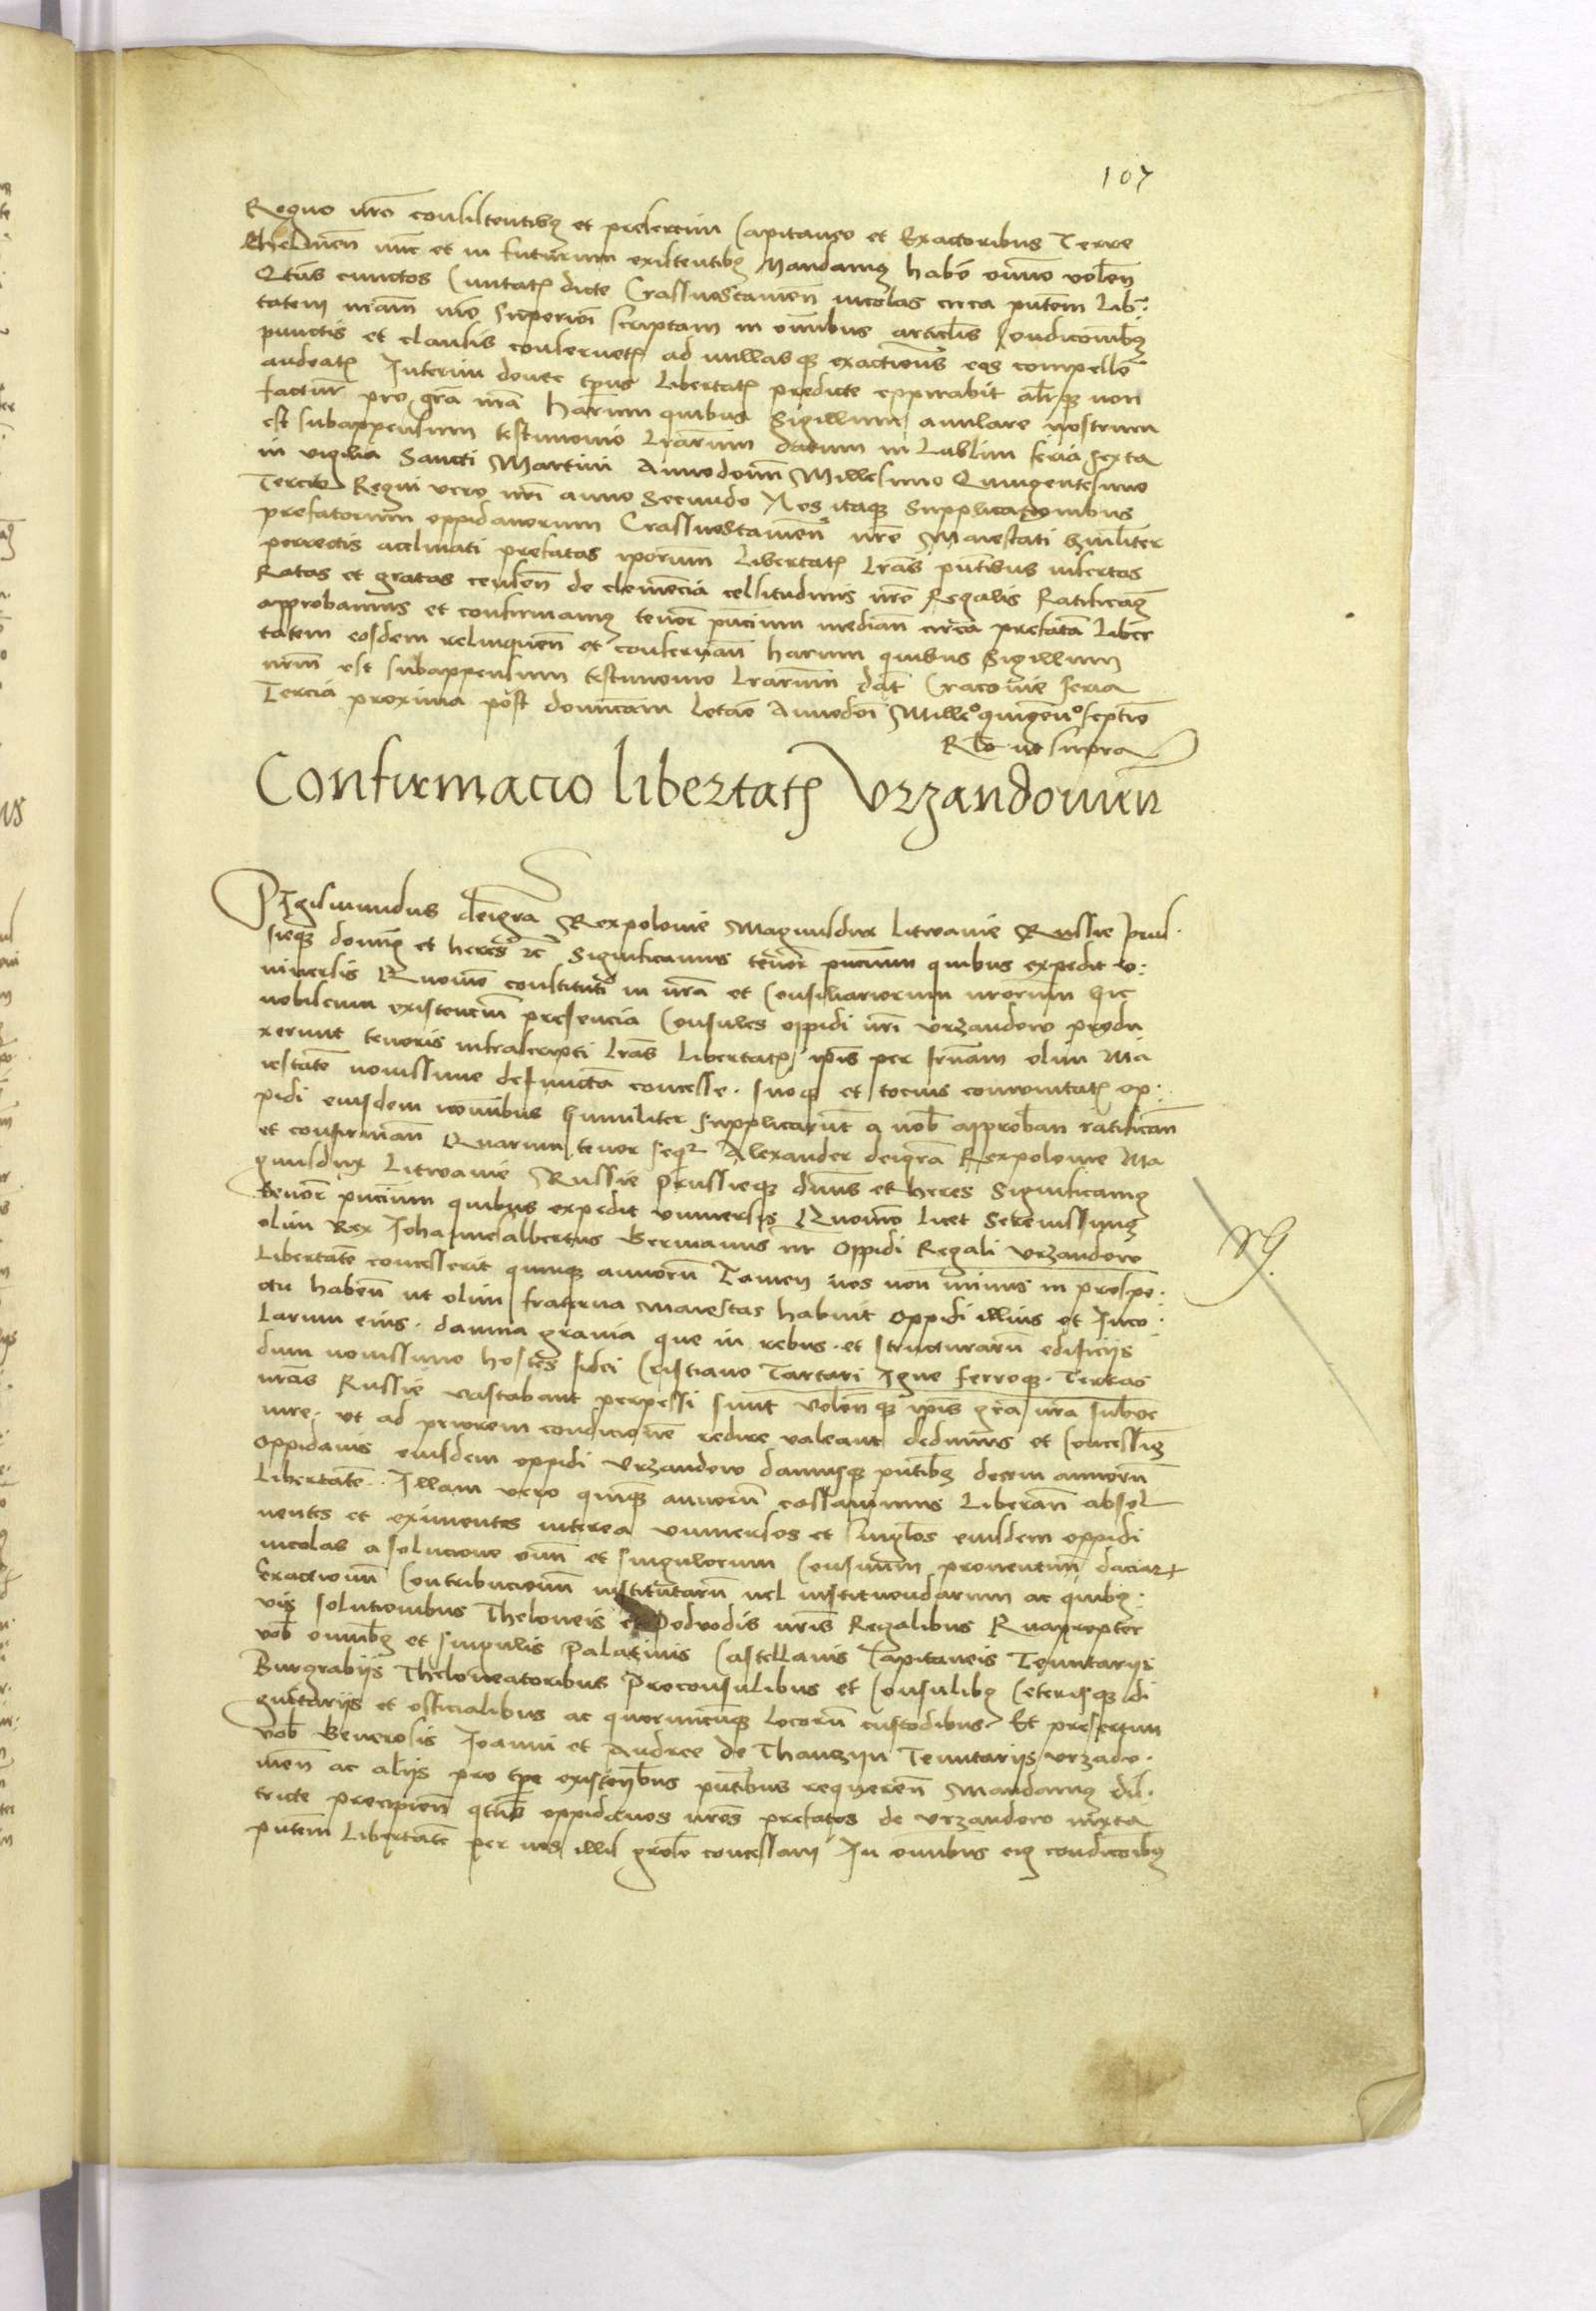 107
Regno nro consistentibus et presertim Capitaneo et Exactoribus Terre
Chelmen nunc et in futurum existentibus Mandamus habere omnino volen
Qtus cunctos Civitatis dicte Crassnostawien incolas circa pntem Liber
tatem nram modo superiori scriptam in omnibus articulis Condicionibus
punctis et clausis conservetis ad nullasque exactiones eos compellere
audeatis Interim donec tpus Libertatis predicte expirabit alrque non
factur pro gra nra harum quibus Sigillum annulare nostrum
est subappensum testimonio Lrarum datum in Lublin feria sexta
in vigilia Sancti Martini Annodomini Millesimo Quingentesimo
Tercio Regni vero nri anno Secundo Nos itaque Supplicacionibus
prefatorum oppidanorum Crassnostawien nre Maiestati humiliter
porrectis acclinati prefatas ipsorum Libertatis Lras pntibus insertas
Ratas et gratas censen de clemencia celsitudinis nre Regalis Ratificamus
approbamus et confirmamus tenore pncium median circa prefatam Liber
tatem eosdem relinquen et conservan harum quibus Sigillum
nrm est subappensum testimonio Lrarum dat Cracovie feria
Tercia proxima post dominicam Letare Annodni Millo quingento septimo
Rlo ut supra
Confirmacio libertatis Vrzandowien
Sigismundus deigra Rexpolonie Magnusdux Litwanie Russie Prus
sieque dominus et heres etc Significamus tenore pncium quibus expedit v
niversis Quomo constituti in nra et Consiliariorum nrorum hic
nobiscum existencium presencia Consules oppidi nri Vrzandow produ
xerunt tenoris infrascripti Lras Libertatis ipsis per frnam olim Ma
iestatem novissime defunctam concesse. suoque et tocius communitatis op
pidi eiusdem nominibus humiliter supplicarunt a nob approban ratifican
et confirman Quarum tenor sequitur Alexander deigra Rexpolonie Ma
gnusdux Litwanie Russie Prussieque dnus et heres Significamus
tenore pncium quibus expedit universis Quomo licet Serenissimus
olim Rex Johannesalbertus Germanus nr oppidi Regali Vrzandow
Libertatem concesserit quinque annorum Tamen nos non minus in prospe
ctu haben ut olim fraterna Maiestas habuit oppidi illius et Inco
larum eius. damna gravia que in rebus. et structurarum edificiis
dum novissimo hostes fidei Cristiane Tartari Igne ferroque. Terras
nras Russie vastabant perpessi sunt volenque ipsis gra nra subve
nire. ut ad priorem condicionem redire valeant dedimus et Concessimus
oppidanis eiusdem oppidi Vrzandow damusque pntibus decem annorum
Libertatem. Illam vero quinque annorum cassavimus Liberan absol
ventes et eximentes interea universos et singlos eiusdem oppidi
incolas a solucione omnium et singulorum Censuum proventuum daciarum
Exactionum Contribucionum institutarum vel instituendarum ac quibus
vis solutionibus Theloneis et Podvodis nris Regalibus Quapropter
vob omnibus et singulis Palatinis Castellanis Capitaneis Tenutariis
Burgrabiis Theloneatoribus Proconsulibus et Consulibus Ceterisque di
gnitariis et officialibus ac quorumcunque Locorum custodibus Et presertim
vob Generosis Joanni et Andree de Thanczyn Tenutariis Vrzado
wien ac aliis pro tpe existentibus pntibus requiren Mandamus dis
tricte precipien qtus oppidanos nros prefatos de Vrzandow iuxta
pntem Libertatem per nos illis grose concessam In omnibus eius condicionibus